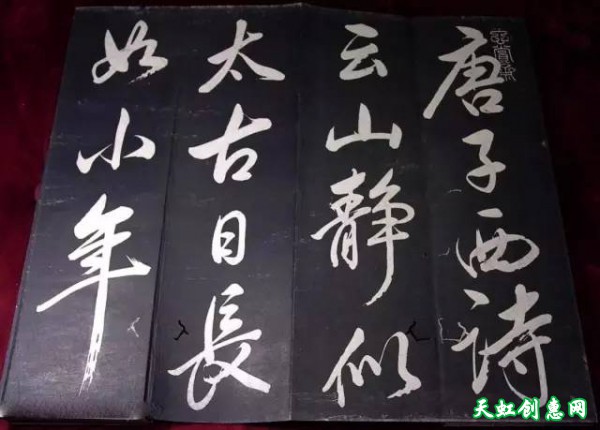 唐子西诗
云山静似
太古日長
如小年
天虹创惠网